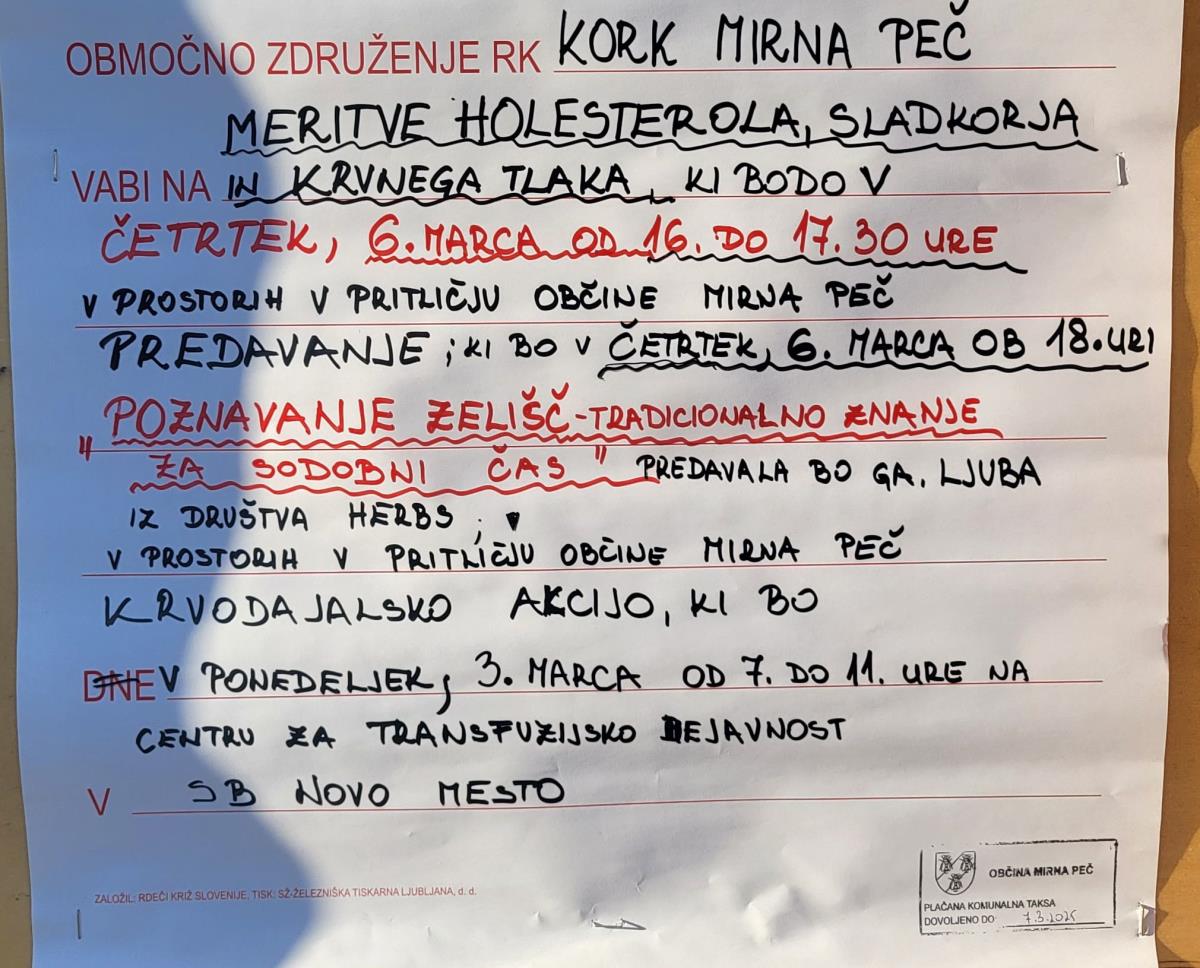 OBMOČNO ZDRUŽENJE RK KORK MIRNA PEČ
MERITVE HOLESTEROLA, SLADKORJA
VABI NA IN KRVNEGA TLAKA, KI BODO V
ČETRTEK, 6. MARCA OD 16. DO 17.30 URE
V PROSTORIH V PRITLIČJU OBČINE MIRNA PEČ
PREDAVANJE, KI BO V ČETRTEK, 6. MARCA OB 18. URI
"POZNAVANJE ZELIŠČ - TRADICIONALNO ZNANJE
ZA SODOBNI ČAS" PREDAVALA BO GA. LJUBA
IZ DRUŠTVA HERBS,
V PROSTORIH V PRITLIČJU OBČINE MIRNA PEČ
KRVODAJALSKO AKCIJO, KI BO
DNE V PONEDELJEK, 3. MARCA OD 7. DO 11. URE NA
CENTRU ZA TRANSFUZIJSKO DEJAVNOST
V SB NOVO MESTO
ZALOŽIL: RDEČI KRIŽ SLOVENIJE, TISK: SŽ-ŽELEZNIŠKA TISKARNA LJUBLJANA, d. d.
OBČINA MIRNA PEČ
PLAČANA KOMUNALNA TAKSA
DOVOLJENO DO 7.3.2025